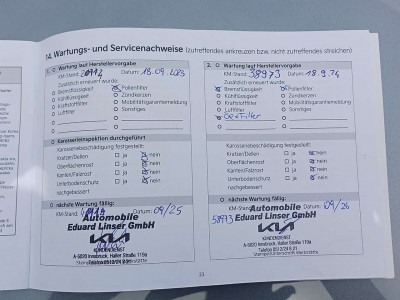 14. Wartungs- und Servicenachweise (zutreffendes ankreuzen bzw. nicht zutreffendes streichen)
1. Wartung laut Herstellervorgabe
KM-Stand: Datum: 18.09.2023
Zusätzlich erneuert wurde:
Bremsflüssigkeit Pollenfilter
Kühlflüssigkeit Zündkerzen
Kraftstofffilter Mobilitätsgarantiemeldung
Luftfilter Sonstiges
Karosserieinspektion durchgeführt
Karosseriebeschädigung festgestellt:
Kratzer/Dellen ja nein
Oberflächenrost ja nein
Kanten/Falzrost ja nein
Unterbodenschutz ja nein
nachgebessert
nächste Wartung fällig:
KM-Stand: Datum: 09/25
Automobile
Eduard Linser GmbH
KIA
KUNDENDIENST
A-6020 Innsbruck, Haller Straße 119a
Stempel/Unterschrift Werkstätte
2. Wartung laut Herstellervorgabe
KM-Stand: 38973 Datum: 18.9.24
Zusätzlich erneuert wurde:
Bremsflüssigkeit Pollenfilter
Kühlflüssigkeit Zündkerzen
Kraftstofffilter Mobilitätsgarantiemeldung
Luftfilter Sonstiges
Karosseriebeschädigung festgestellt:
Kratzer/Dellen ja nein
Oberflächenrost ja nein
Kanten/Falzrost ja nein
Unterbodenschutz ja nein
nachgebessert
nächste Wartung fällig:
KM-Stand: 58973 Datum: 09/26
Automobile
Eduard Linser GmbH
KIA
KUNDENDIENST
A-6020 Innsbruck, Haller Straße 119a
Stempel/Unterschrift Werkstätte
33